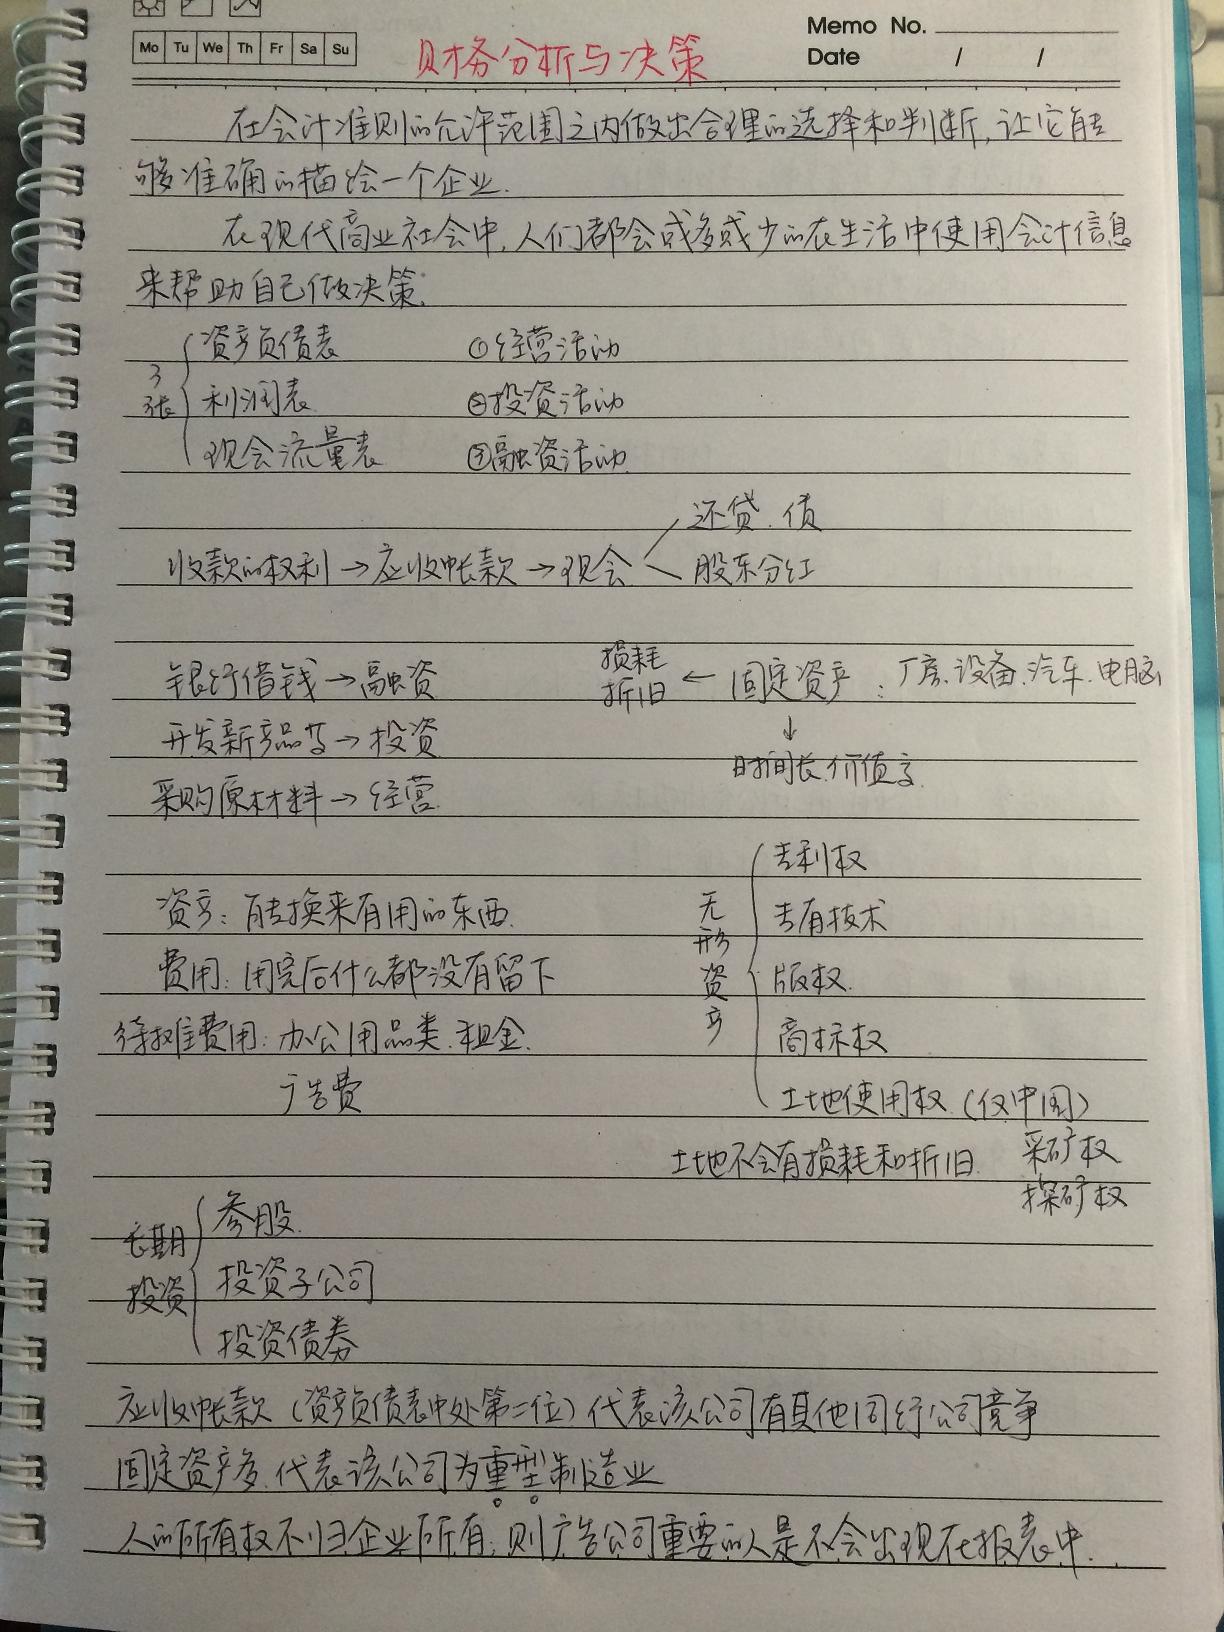 Memo No.
Mo Tu We Th Fr Sa Su
Date / /
财务分析与决策
在会计准则的允许范围之内做出合理的选择和判断,让它能
够准确的描绘一个企业.
在现代商业社会中,人们都会或多或少的在生活中使用会计信息
来帮助自己做决策.
3张
资产负债表 ①经营活动
利润表 ②投资活动
现金流量表 ③融资活动
还贷.债
收款的权利→应收帐款→现金
股东分红
银行借钱→融资
损耗 折旧 ← 固定资产: 厂房.设备.汽车.电脑
开发新产品等→投资
↓
时间长.价值高
采购原材料→经营.
专利权
资产: 能换来有用的东西.
无形资产
专有技术
费用: 用完后什么都没有留下
版权.
待摊费用: 办公用品类.租金.
商标权
广告费
土地使用权 (仅中国)
土地不会有损耗和折旧. 采矿权
探矿权
长期投资
参股.
投资子公司
投资债券
应收帐款(资产负债表中处第二位)代表该公司有其他同行公司竞争
固定资产多.代表该公司为重型制造业
人的所有权不归企业所有,则广告公司重要的人是不会出现在报表中.